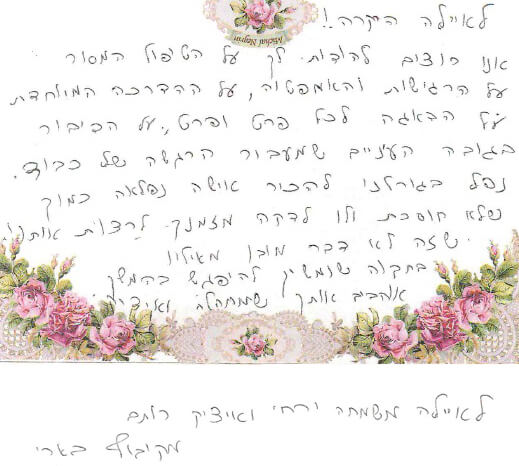 לאיילה היקרה!
Michal Negrin
אנו רוצים להודות לך על הטיפול המסור
על הרגישות והאמפטיה, על ההדרכה המיוחדת
על הדאגה לכל פרט ופרט, על הכיבוד
בגובה העיניים הרגשה של כבוד.
נפל בגורלנו להכור אישה נפלאה כמוך
שלא חוסכת ולו לדקה מזמנך לרצות אותנו
שזה לא דבר מובן מאיליו
בתקוה שנמשיך להיפגש בהמשך
אוהבים אותך ואיציק
לאיילה משמחה ואיציק רותם
מקיבוץ בארי